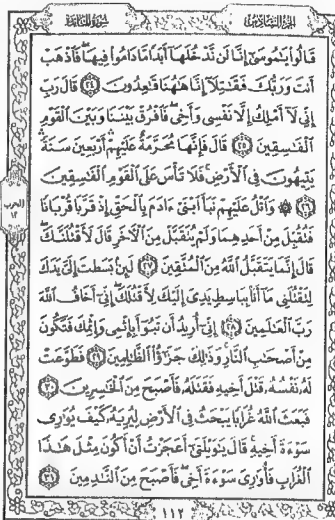 الجزء السادس سورة المائدة
قَالُوا۟ يَـٰمُوسَىٰٓ إِنَّا لَن نَّدْخُلَهَآ أَبَدًا مَّا دَامُوا۟ فِيهَا فَٱذْهَبْ
أَنتَ وَرَبُّكَ فَقَـٰتِلَآ إِنَّا هَـٰهُنَا قَـٰعِدُونَ ٢٤ قَالَ رَبِّ
إِنِّى لَآ أَمْلِكُ إِلَّا نَفْسِى وَأَخِى فَٱفْرُقْ بَيْنَنَا وَبَيْنَ ٱلْقَوْمِ
ٱلْفَـٰسِقِينَ ٢٥ قَالَ فَإِنَّهَا مُحَرَّمَةٌ عَلَيْهِمْ أَرْبَعِينَ سَنَةً
يَتِيهُونَ فِى ٱلْأَرْضِ فَلَا تَأْسَ عَلَى ٱلْقَوْمِ ٱلْفَـٰسِقِينَ
٢٦ ۞ وَٱتْلُ عَلَيْهِمْ نَبَأَ ٱبْنَىْ ءَادَمَ بِٱلْحَقِّ إِذْ قَرَّبَا قُرْبَانًا
فَتُقُبِّلَ مِنْ أَحَدِهِمَا وَلَمْ يُتَقَبَّلْ مِنَ ٱلْـَٔاخَرِ قَالَ لَأَقْتُلَنَّكَ
قَالَ إِنَّمَا يَتَقَبَّلُ ٱللَّهُ مِنَ ٱلْمُتَّقِينَ ٢٧ لَئِنۢ بَسَطتَ إِلَىَّ يَدَكَ
لِتَقْتُلَنِى مَآ أَنَا۠ بِبَاسِطٍ يَدِىَ إِلَيْكَ لِأَقْتُلَكَ إِنِّىٓ أَخَافُ ٱللَّهَ
رَبَّ ٱلْعَـٰلَمِينَ ٢٨ إِنِّىٓ أُرِيدُ أَن تَبُوٓأَ بِإِثْمِى وَإِثْمِكَ فَتَكُونَ
مِنْ أَصْحَـٰبِ ٱلنَّارِ وَذَٰلِكَ جَزَٰٓؤُا۟ ٱلظَّـٰلِمِينَ ٢٩ فَطَوَّعَتْ
لَهُۥ نَفْسُهُۥ قَتْلَ أَخِيهِ فَقَتَلَهُۥ فَأَصْبَحَ مِنَ ٱلْخَـٰسِرِينَ ٣٠
فَبَعَثَ ٱللَّهُ غُرَابًا يَبْحَثُ فِى ٱلْأَرْضِ لِيُرِيَهُۥ كَيْفَ يُوَٰرِى
سَوْءَةَ أَخِيهِ قَالَ يَـٰوَيْلَتَىٰٓ أَعَجَزْتُ أَنْ أَكُونَ مِثْلَ هَـٰذَا
ٱلْغُرَابِ فَأُوَٰرِىَ سَوْءَةَ أَخِى فَأَصْبَحَ مِنَ ٱلنَّـٰدِمِينَ ٣١
الحزب
١٢
١١٢